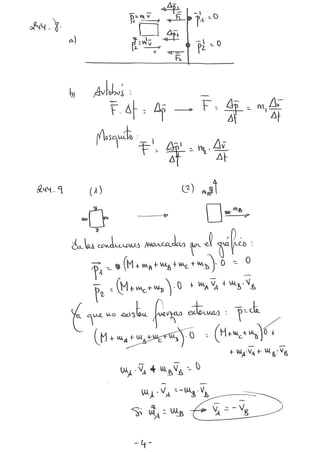 244.8.
a)
p̄₁=m·v̄ Δp̄₁ F̄₁ p̄'₁=0
p̄₂=m·v̄ Δp̄₂ F̄₂ p̄'₂=0
b) Autobús:
F̄·Δt = Δp̄ → F̄ = Δp̄/Δt = m₁ Δv̄/Δt
Mosquito:
F̄' = Δp̄'/Δt = m₂ · Δv̄/Δt
244.9 (1) (2) m_A
m_B
En las condiciones marcadas por el gráfico:
p̄₁ = (M+m_A+m_B+m_C+m_D)·0 = 0
p̄₂ = (M+m_C+m_D)·0 + m_A·v̄_A + m_B·v̄_B
Ya que no existen fuerzas externas: p̄=cte
(M+m_A+m_B+m_C+m_D)·0 = (M+m_C+m_D)·0 +
+ m_A·v̄_A + m_B·v̄_B
m_A·v̄_A + m_B·v̄_B = 0
m_A·v̄_A = -m_B·v̄_B
Si m_A = m_B → v̄_A = -v̄_B
-4-